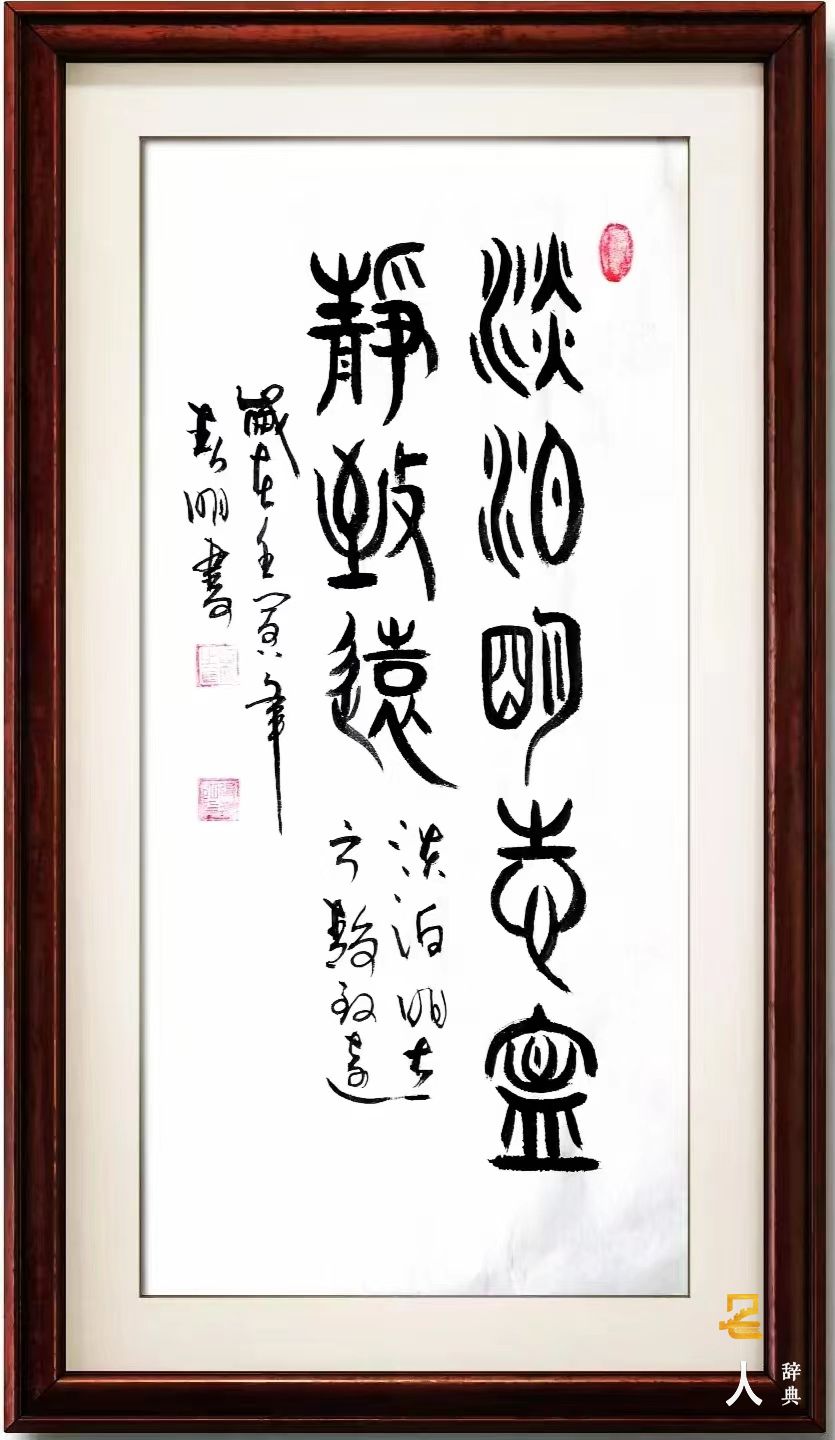 淡泊明志寧
靜致遠
淡泊明志
宁靜致遠
歲在壬寅年
明書
人
辞典